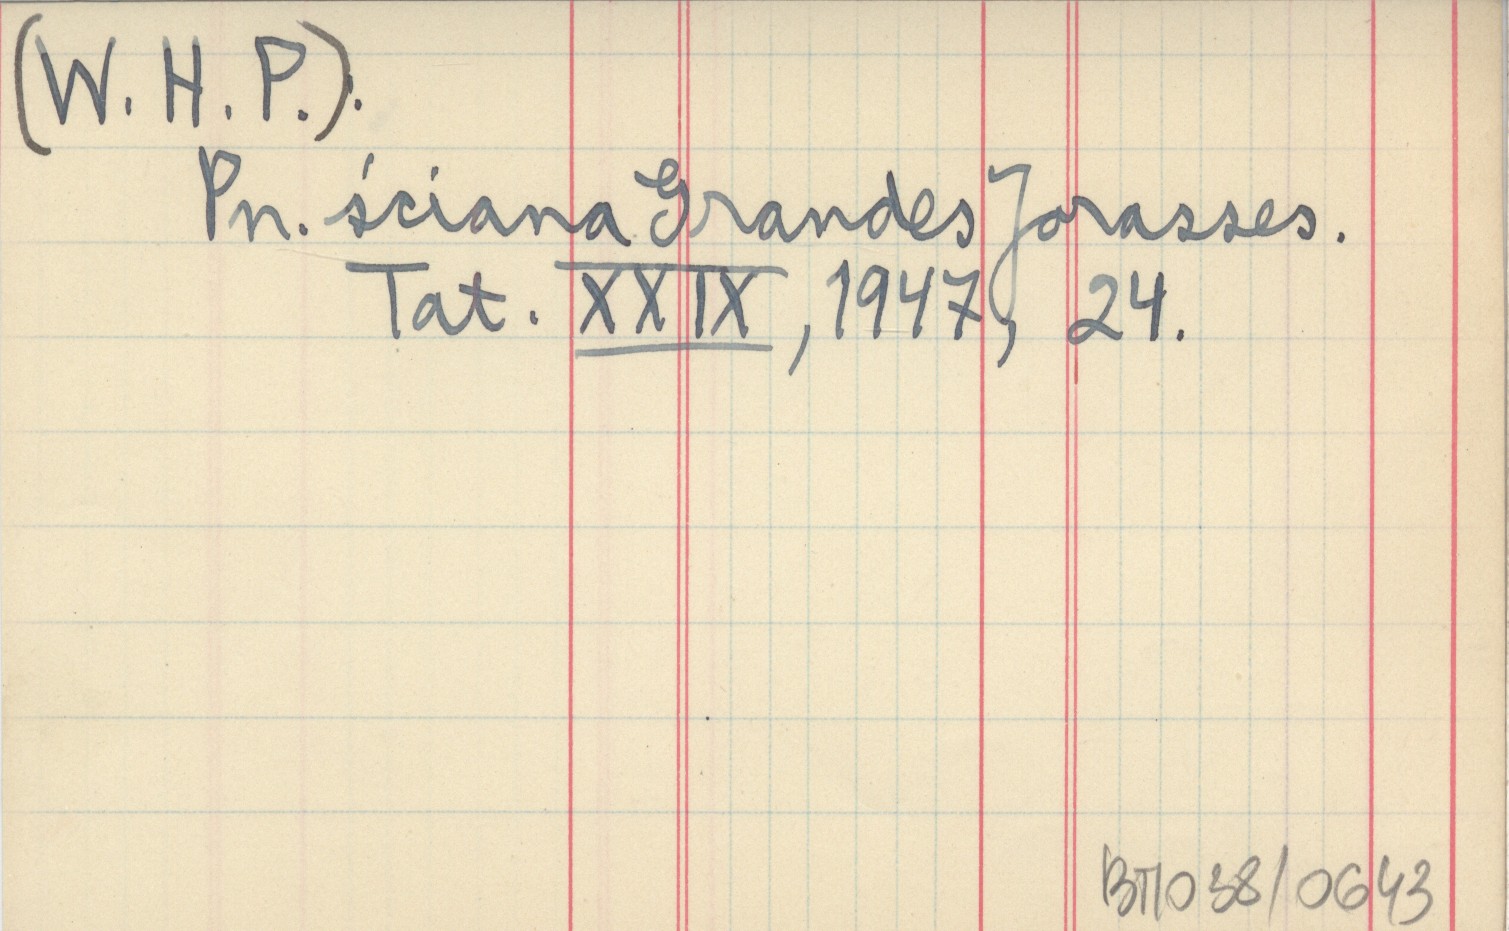 (W. H. P.).
Pn. ściana Grandes Jorasses.
Tat. XXIX, 1947, 24.
BTI038/0643